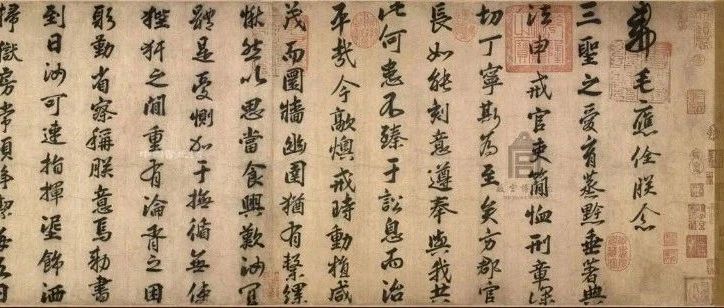 勅毛應佺朕念
三聖之愛育蒸黔垂著典
法申戒官吏蕳恤刑章深
切丁寧斯為至矣方郡官
長如能刻意遵奉與我共
此何患不臻于訟息而治
平哉今歊燠戒時動植咸
茂而圜牆幽圄猶有繫縲
愀然以思當食興歎汝宜
體是憂惻加于撫循無使
狴犴之間重有淪胥之困
躬勤省察稱朕意焉勅書
到日汝可速指揮飾洒
掃獄房常須淨潔每五日